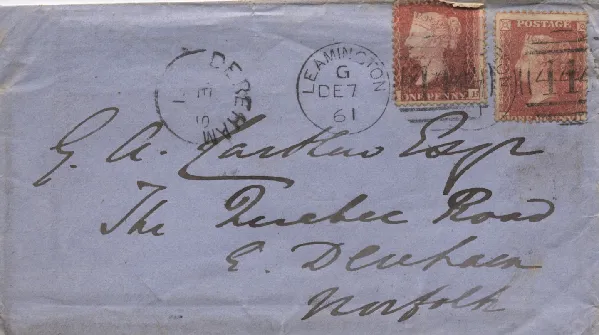 DEREHAM
LEAMINGTON
G
DE 7
61
POSTAGE
ONE PENNY
G. A. Carthew Esqr
The Quebec Road
E. Dereham
Norfolk